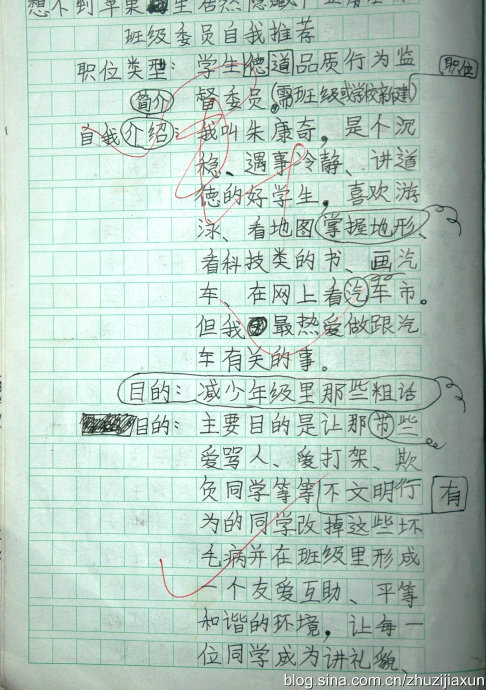 想不到苹果里居然隐藏
班级委员自我推荐
职位类型：学生德道品质行为监
职位
简介
督委员（需班级或学校新建）
自我介绍：我叫朱康奇，是个沉
稳、遇事冷静、讲道
德的好学生，喜欢游
泳、看地图掌握地形、
看科技类的书、画汽
车、在网上看汽车市。
但我最热爱做跟汽
车有关的事。
目的：减少年级里那些粗话
目的：主要目的是让那带些
爱骂人、爱打架、欺
负同学等等不文明行
有
为的同学改掉这些坏
毛病并在班级里形成
一个友爱互助、平等
和谐的环境，让每一
位同学成为讲礼貌、
blog.sina.com.cn/zhuzijiaxun